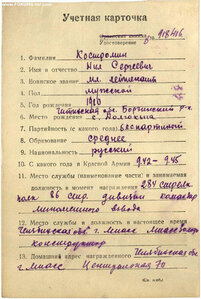 Учетная карточка
Удостоверение № 918416
1. Фамилия Костромин
2. Имя и отчество Нил Сергеевич
3. Воинское звание мл. лейтенант
4. Пол мужской
5. Год рождения 1910
6. Место рождения
7. Партийность (с какого года) беспартийный
8. Образование среднее
9. Национальность русский
10. С какого года в Красной Армии 942 - 945
11. Место службы (наименование части) и занимаемая
должность в момент награждения 284 стрелк.
полк 86 стр. дивизии командир
минометного взвода
12. Место службы и должность в настоящее время
Челябинская обл. г. Миасс
конструктор
13. Домашний адрес награжденного Челябинская обл.
г. Миасс 70